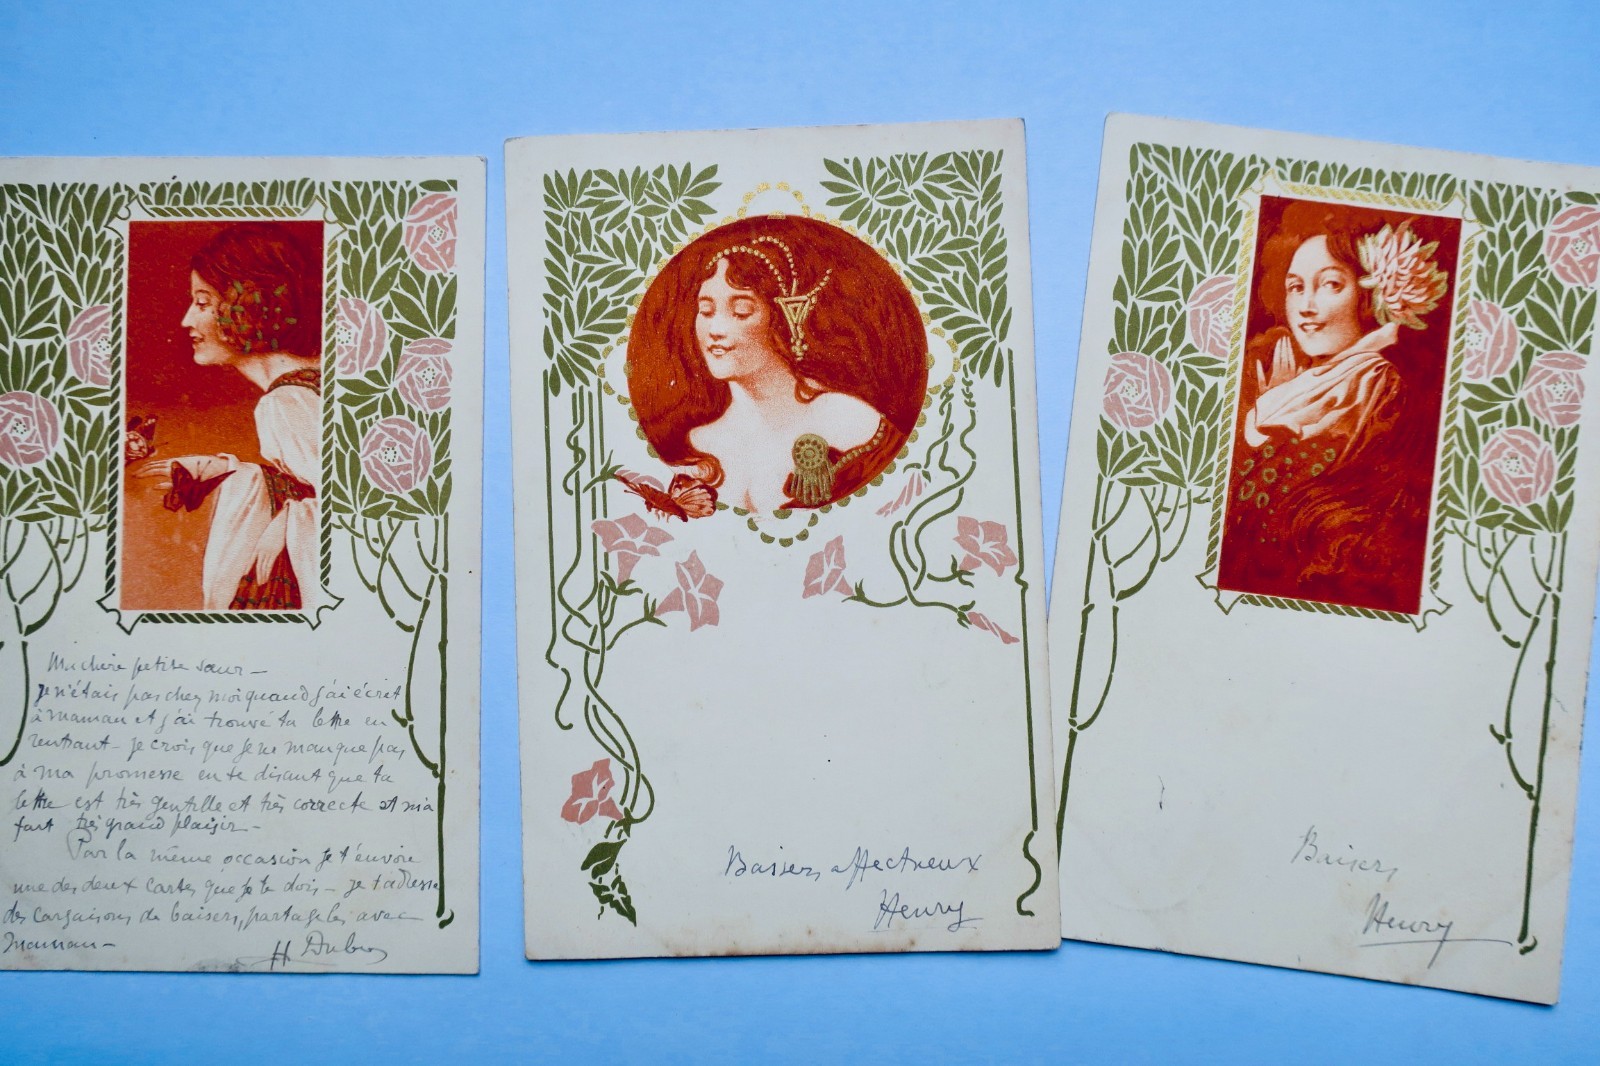 Ma chère petite sœur -
je n'étais pas chez moi quand j'ai écrit
à maman et j'ai trouvé ta lettre en
rentrant - je crois que je ne manque pas
à ma promesse en te disant que ta
lettre est très gentille et très correcte et m'a
fait très grand plaisir -
Par la même occasion je t'envoie
une des deux cartes que je te dois - je t'adresse
des cargaisons de baisers, partage les avec
maman -
H
Baisers affectueux
Henry
Baisers
Henry